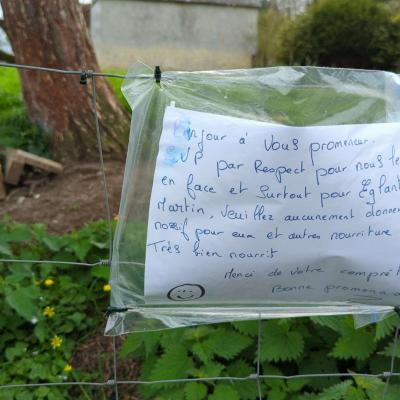 Bonjour à Vous promeneur.
SVP par Respect pour nous le
en face et Surtout pour Églant
Martin, Veuillez aucunement donner
nossif pour eux et autres nourriture
Très bien nourrit
Merci de votre compré
Bonne promena